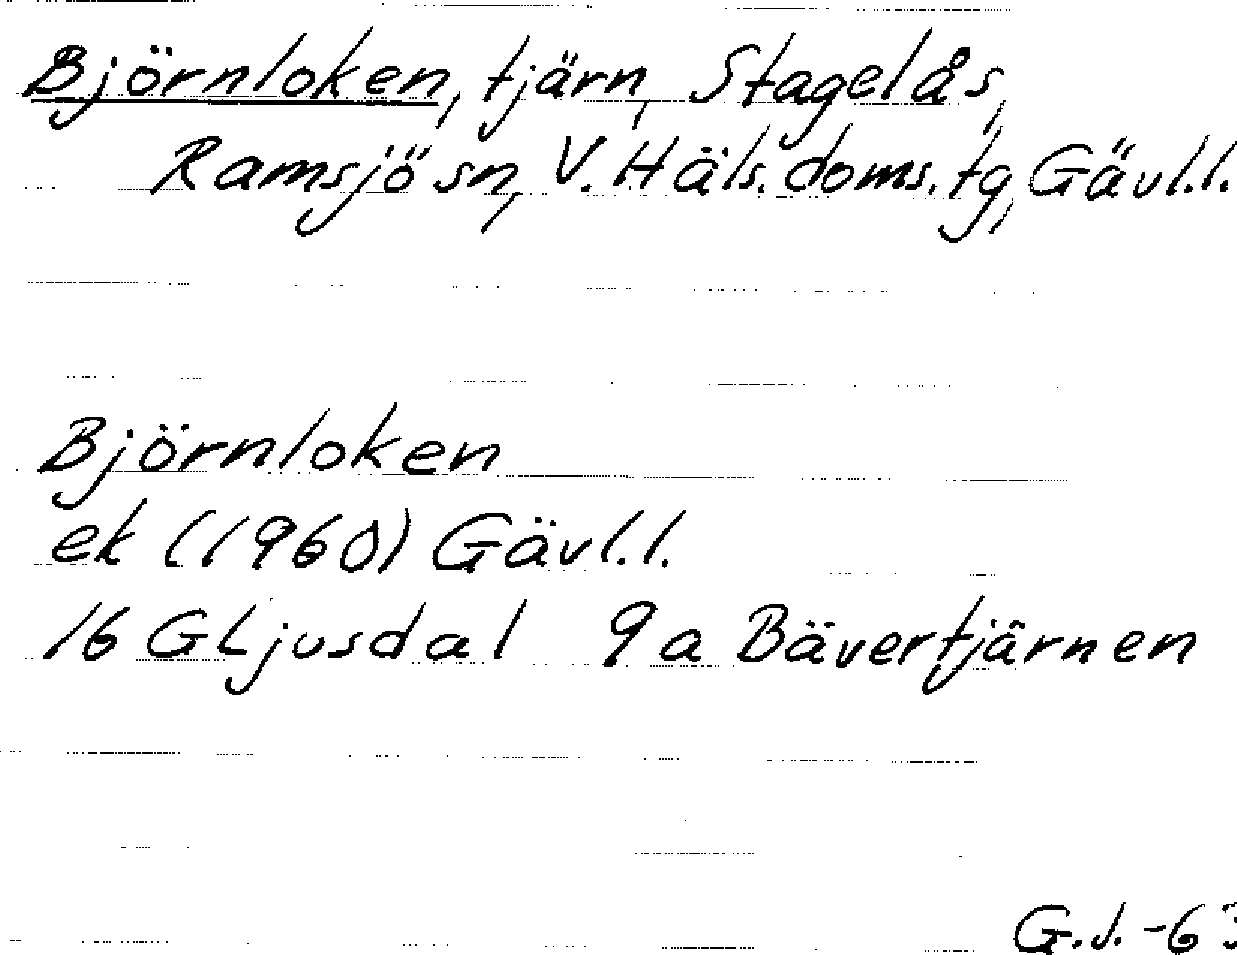 Björnloken, tjärn, Stagelås,
Ramsjö sn, V. Häls. doms. tg, Gävl.l.
Björnloken
ek (1960) Gävl.l.
16 G Ljusdal 9a Bävertjärnen
G.J. -63